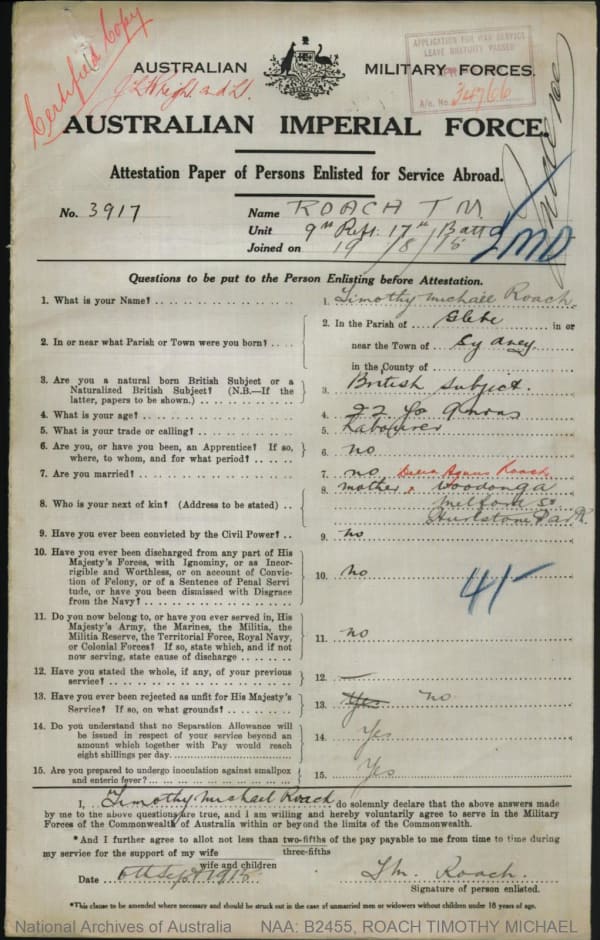 Certified Copy
APPLICATION FOR WAR SERVICE
LEAVE GRATUITY PASSED
A/c. No. 34766
AUSTRALIAN MILITARY FORCES.
AUSTRALIAN IMPERIAL FORCE.
Attestation Paper of Persons Enlisted for Service Abroad.
No. 3917 Name ROACH T M.
Unit 9th Reft: 17th Battn
Joined on 19/8/15
Questions to be put to the Person Enlisting before Attestation.
1. What is your Name? 1. Timothy Michael Roach.
2. In or near what Parish or Town were you born? 2. In the Parish of Glebe in or
near the Town of Sydney
in the County of
3. Are you a natural born British Subject or a
Naturalized British Subject? (N.B.—If the
latter, papers to be shown.) 3. British Subject.
4. What is your age? 4. 22 yrs 9 mons
5. What is your trade or calling? 5. Labourer
6. Are you, or have you been, an Apprentice? If so,
where, to whom, and for what period? 6. no
7. Are you married? 7. no Agnes Roach
8. Who is your next of kin? (Address to be stated) 8. mother, Woodonga
Milford St
Hurlstone Park.
9. Have you ever been convicted by the Civil Power? 9. no
10. Have you ever been discharged from any part of His
Majesty's Forces, with Ignominy, or as Incor-
rigible and Worthless, or on account of Convic-
tion of Felony, or of a Sentence of Penal Servi-
tude, or have you been dismissed with Disgrace
from the Navy? 10. no
4/-
11. Do you now belong to, or have you ever served in, His
Majesty's Army, the Marines, the Militia, the
Militia Reserve, the Territorial Force, Royal Navy,
or Colonial Forces? If so, state which, and if not
now serving, state cause of discharge 11. no
12. Have you stated the whole, if any, of your previous
service? 12. —
13. Have you ever been rejected as unfit for His Majesty's
Service? If so, on what grounds? 13. Yes no
14. Do you understand that no Separation Allowance will
be issued in respect of your service beyond an
amount which together with Pay would reach
eight shillings per day. 14. Yes
15. Are you prepared to undergo inoculation against smallpox
and enteric fever? 15. Yes
I, Timothy Michael Roach do solemnly declare that the above answers made
by me to the above questions are true, and I am willing and hereby voluntarily agree to serve in the Military
Forces of the Commonwealth of Australia within or beyond the limits of the Commonwealth.
*And I further agree to allot not less than two-fifths of the pay payable to me from time to time during
three-fifths
my service for the support of my wife
wife and children
Date 6th Sept 1915 T.M. Roach.
Signature of person enlisted.
*This clause to be amended where necessary and should be struck out in the case of unmarried men or widowers without children under 18 years of age.
National Archives of Australia NAA: B2455, ROACH TIMOTHY MICHAEL